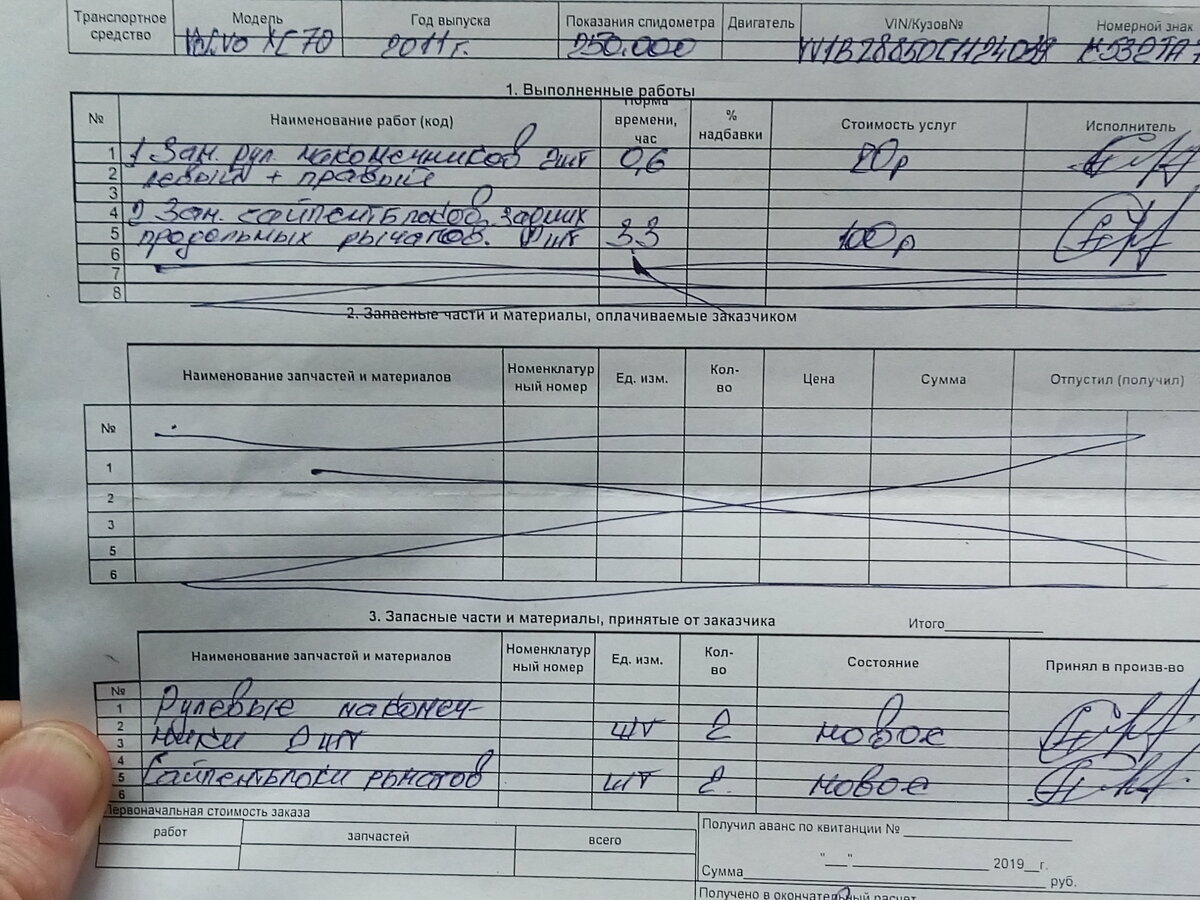 Транспортное средство
Модель
Год выпуска
Показания спидометра
Двигатель
VIN/Кузов№
Номерной знак
Volvo XC70
2011г.
250.000
1. Выполненные работы
№
Наименование работ (код)
Норма времени, час
% надбавки
Стоимость услуг
Исполнитель
1
1 Зам. рул. наконечников 2шт
0,6
20р
2
левый + правый
3
4
2 Зам. сайлентблоков задних
5
продольных рычагов. 2шт
3.3
100р
6
7
8
2. Запасные части и материалы, оплачиваемые заказчиком
Наименование запчастей и материалов
Номенклатур
ный номер
Ед. изм.
Кол-
во
Цена
Сумма
Отпустил (получил)
№
1
2
3
5
6
3. Запасные части и материалы, принятые от заказчика
Итого
Наименование запчастей и материалов
Номенклатур
ный номер
Ед. изм.
Кол-
во
Состояние
Принял в произв-во
№
1
Рулевые наконеч-
2
3
ники 2шт
шт
2
новое
4
5
Сайлентблоки рычагов
шт
2.
новое
6
Первоначальная стоимость заказа
работ
запчастей
всего
Получил аванс по квитанции №
"__" 2019__г.
Сумма
руб.
Получено в окончательный расчет